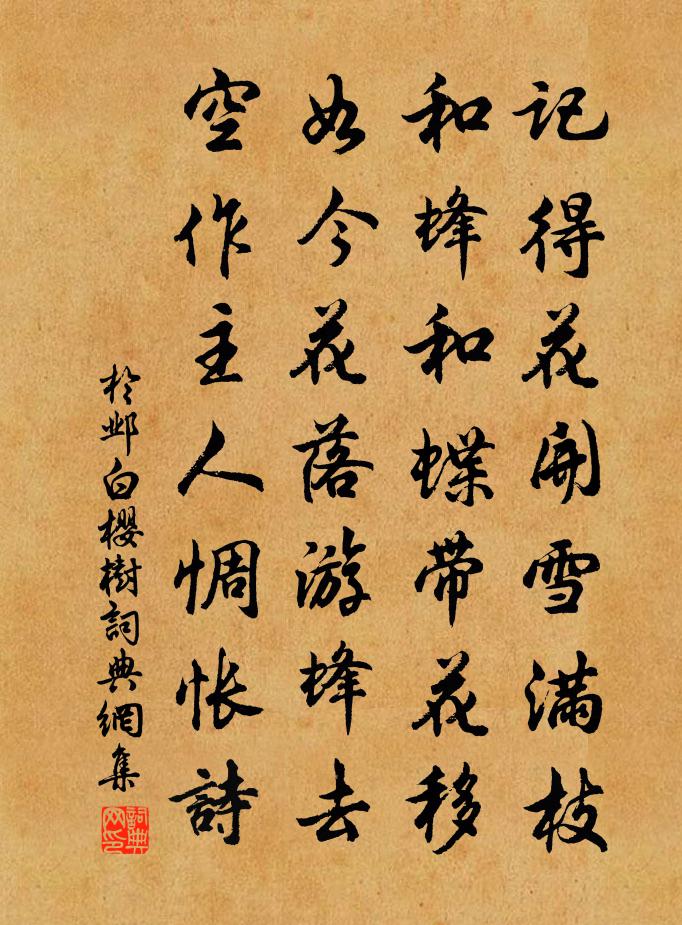 记得花开雪满枝
和蜂和蝶带花移
如今花落游蜂去
空作主人惆怅詩
於邺白櫻樹詞典網集
詞典网印